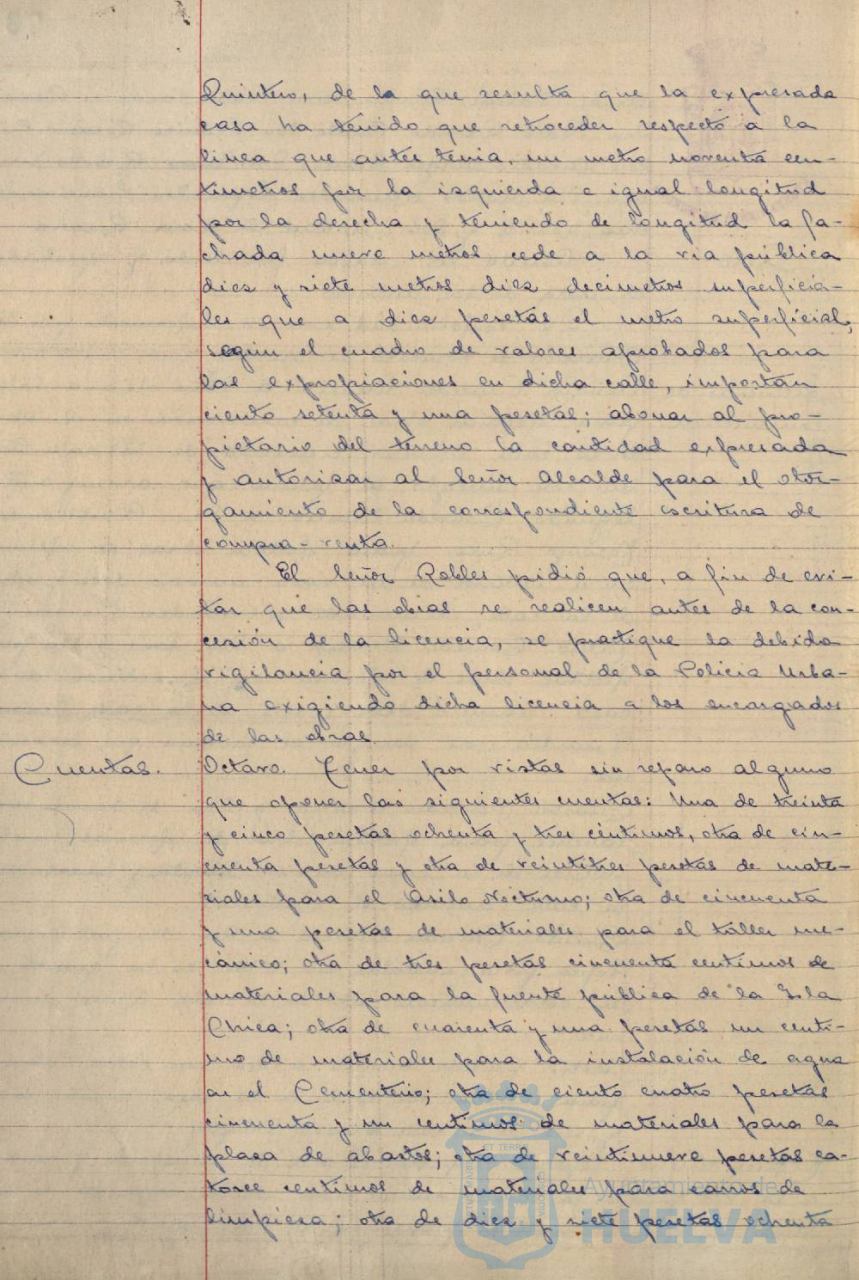 Quintero, de la que resulta que la expresada
casa ha tenido que retroceder respecto a la
linea que antes tenia, un metro noventa cen-
timetros por la izquierda e igual longitud
por la derecha y teniendo de longitud la fa-
chada nueve metros cede a la via pública
diez y siete metros diez decimetros superficia-
les que a diez pesetas el metro superficial,
según el cuadro de valores aprobados para
las expropiaciones en dicha calle, importan
ciento setenta y una pesetas; abonar al pro-
pietario del terreno la cantidad expresada
y autorizar al Señor Alcalde para el otor-
gamiento de la correspondiente escritura de
compra-venta.
El Señor Robles pidió que, a fin de evi-
tar que las obras se realicen antes de la con-
cesión de la licencia, se practique la debida
vigilancia por el personal de la Policia Urba-
na exigiendo dicha licencia a los encargados
de las obras.
Cuentas.
Octavo. Tener por vistas sin reparo alguno
que oponer las siguientes cuentas: Una de treinta
y cinco pesetas ochenta y tres céntimos, otra de cin-
cuenta pesetas y otra de veintitres pesetas de mate-
riales para el Asilo Nocturno; otra de cincuenta
y una pesetas de materiales para el taller me-
cánico; otra de tres pesetas cincuenta centimos de
materiales para la fuente pública de la Isla
Chica; otra de cuarenta y una pesetas un centi-
mo de materiales para la instalación de agua
en el Cementerio; otra de ciento cuatro pesetas
cincuenta y un centimos de materiales para la
plaza de abastos; otra de veintinueve pesetas ca-
torce centimos de materiales para carros de
limpieza; otra de diez y siete pesetas ochenta
Ayuntamiento de
HUELVA